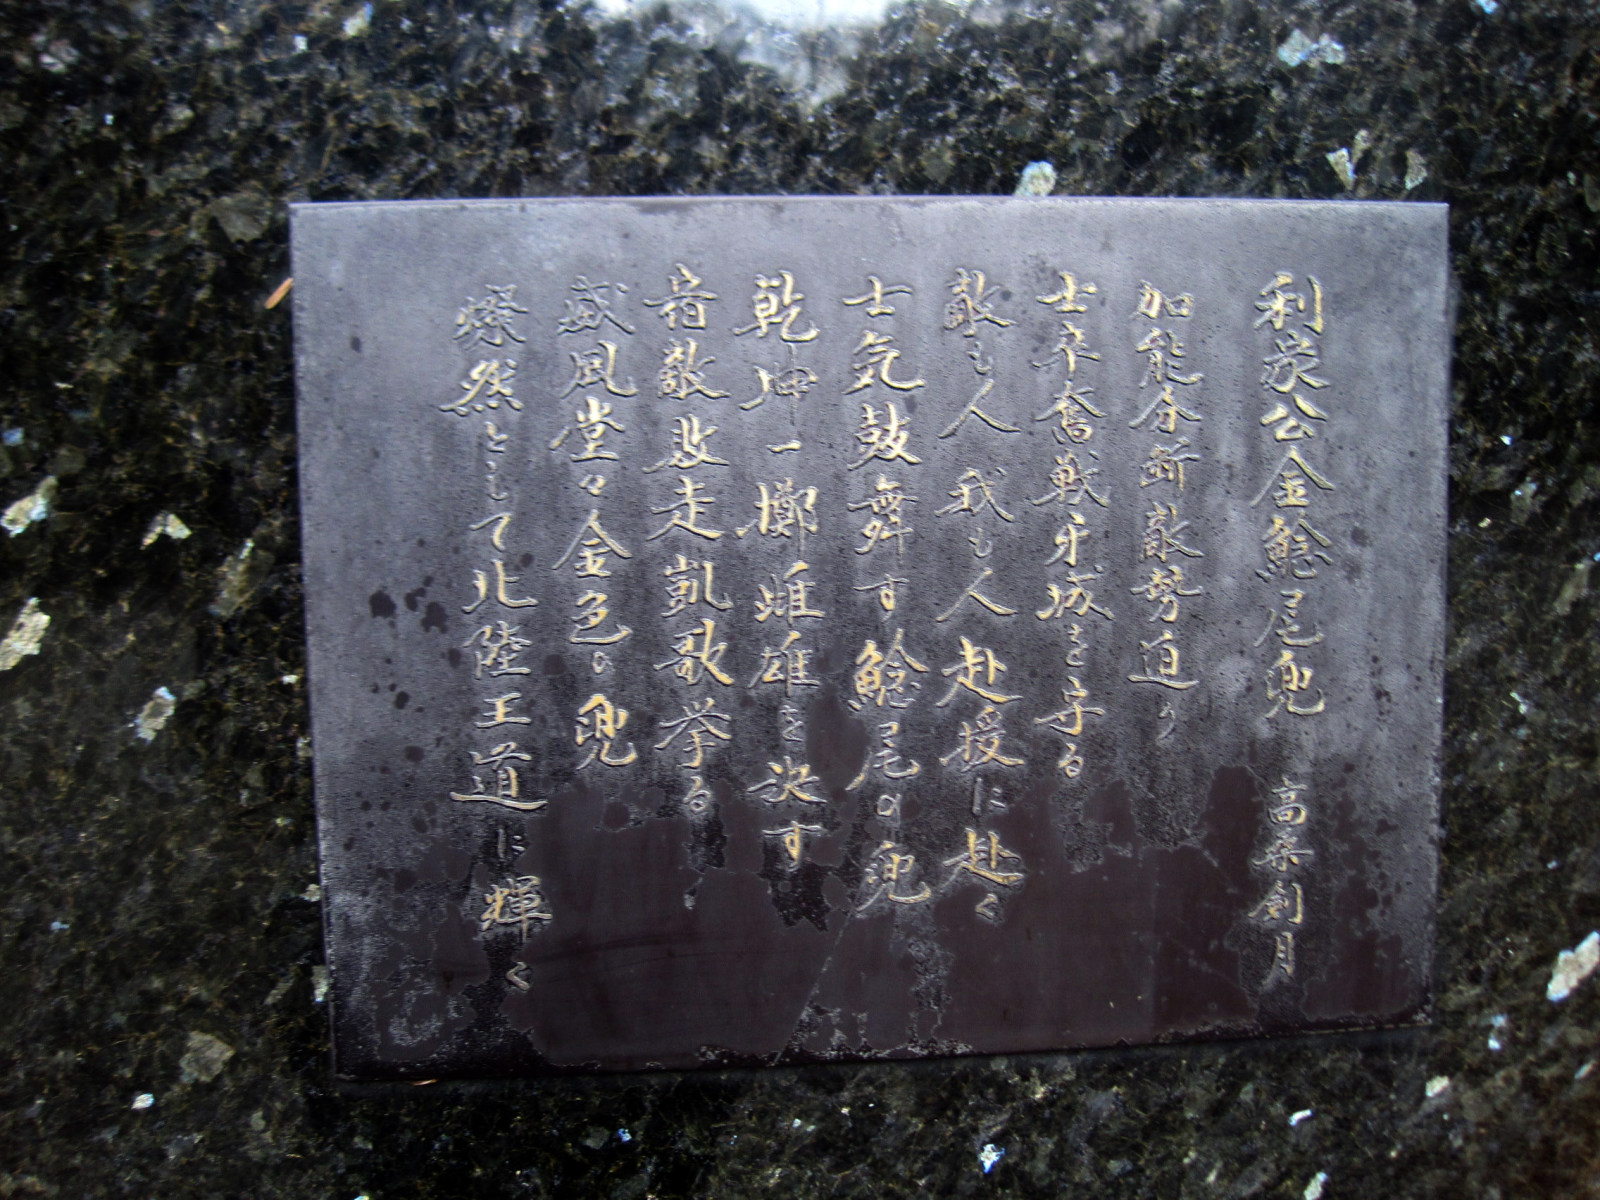 利家公金鯰尾兜 高桑剣月
加能分断敵勢迫り
士卒奮戦牙城を守る
敵も人我も人赴援に赴く
士気鼓舞す鯰尾の兜
乾坤一擲雌雄を決す
敵敗走凱歌挙る
威風堂々金色の兜
燦然として北陸王道に輝く